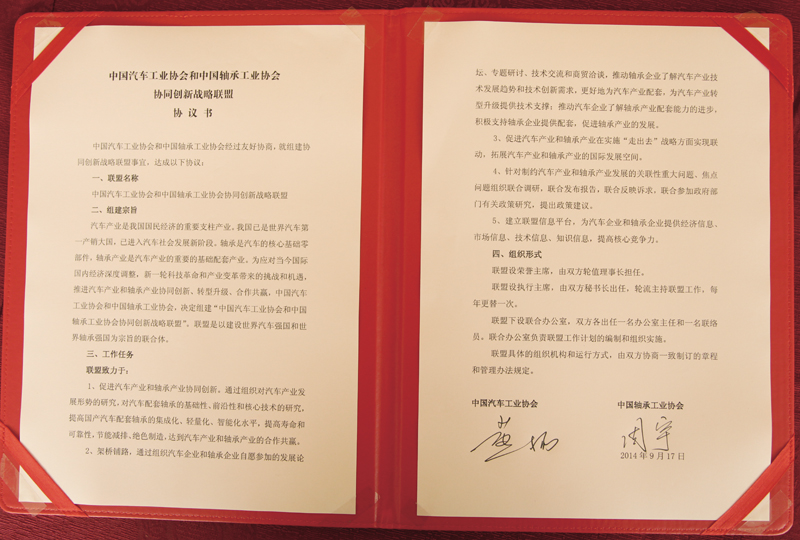 中国汽车工业协会和中国轴承工业协会
协同创新战略联盟
协 议 书
中国汽车工业协会和中国轴承工业协会经过友好协商，就组建协
同创新战略联盟事宜，达成以下协议：
一、联盟名称
中国汽车工业协会和中国轴承工业协会协同创新战略联盟
二、组建宗旨
汽车产业是我国国民经济的重要支柱产业。我国已是世界汽车第
一产销大国，已进入汽车社会发展新阶段。轴承是汽车的核心基础零
部件，轴承产业是汽车产业的重要的基础配套产业。为应对当今国际
国内经济深度调整，新一轮科技革命和产业变革带来的挑战和机遇，
推进汽车产业和轴承产业协同创新、转型升级、合作共赢，中国汽车
工业协会和中国轴承工业协会，决定组建“中国汽车工业协会和中国
轴承工业协会协同创新战略联盟”。联盟是以建设世界汽车强国和世
界轴承强国为宗旨的联合体。
三、工作任务
联盟致力于：
1、促进汽车产业和轴承产业协同创新。通过组织对汽车产业发
展形势的研究，对汽车配套轴承的基础性、前沿性和核心技术的研究，
提高国产汽车配套轴承的集成化、轻量化、智能化水平，提高寿命和
可靠性，节能减排、绝色制造，达到汽车产业和轴承产业的合作共赢。
2、架桥铺路，通过组织汽车企业和轴承企业自愿参加的发展论
坛、专题研讨、技术交流和商贸洽谈，推动轴承企业了解汽车产业技
术发展趋势和技术创新需求，更好地为汽车产业配套，为汽车产业转
型升级提供技术支撑；推动汽车企业了解轴承产业配套能力的进步，
积极支持轴承企业提供配套，促进轴承产业的发展。
3、促进汽车产业和轴承产业在实施“走出去”战略方面实现联
动，拓展汽车产业和轴承产业的国际发展空间。
4、针对制约汽车产业和轴承产业发展的关联性重大问题、焦点
问题组织联合调研，联合发布报告，联合反映诉求，联合参加政府部
门有关政策研究，提出政策建议。
5、建立联盟信息平台，为汽车企业和轴承企业提供经济信息、
市场信息、技术信息、知识信息，提高核心竞争力。
四、组织形式
联盟设荣誉主席，由双方轮值理事长担任。
联盟设执行主席，由双方秘书长出任，轮流主持联盟工作，每
年更替一次。
联盟下设联合办公室，双方各出任一名办公室主任和一名联络
员。联合办公室负责联盟工作计划的编制和组织实施。
联盟具体的组织机构和运行方式，由双方协商一致制订的章程
和管理办法规定。
中国汽车工业协会
中国轴承工业协会
周宇
2014 年 9 月 17 日